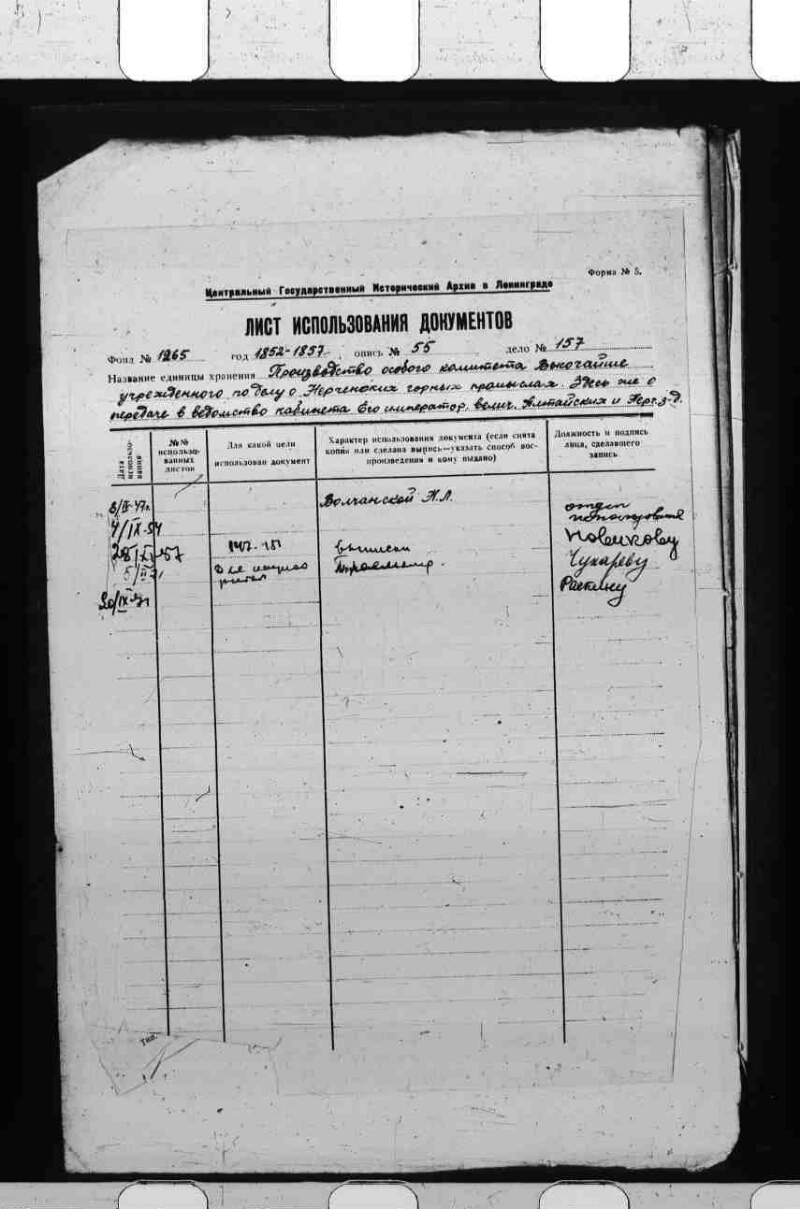 Форма № 5.
Центральный Государственный Исторический Архив в Ленинграде
ЛИСТ ИСПОЛЬЗОВАНИЯ ДОКУМЕНТОВ
Фонд № 1265 год 1852-1857, опись № 55 дело № 157
Название единицы хранения Производство особого комитета Высочайше
учрежденного по делу о Нерченских горных промыслах. Здесь же о
передаче в ведомство кабинета Его император. велич. Алтайских и Нерч. з-д.
Дата использования
№№ использованных листов
Для какой цели использован документ
Характер использования документа (если снята копия или сделана выпись—указать способ воспроизведения и кому выдано)
Должность и подпись лица, сделавшего запись
Волчанской
4/IX-54
147-151 выписки Новикову
Чухареву
Тип.